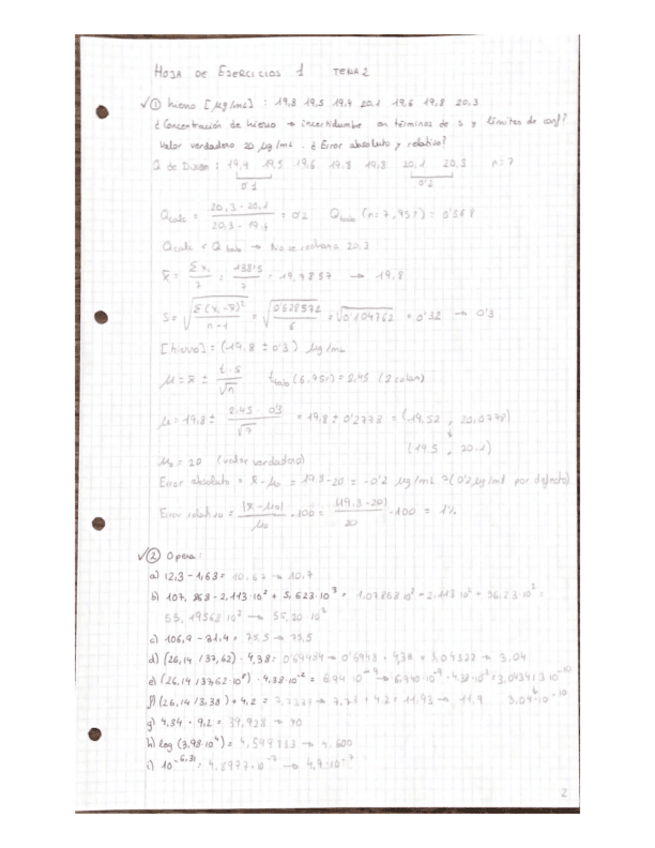 HOJA DE EJERCICIOS 1 TEMA 2
✓① hierro [µg/mL] : 19,8 19,5 19,4 20,1 19,6 19,8 20,3
¿Concentración de hierro → incertidumbre en términos de s y límites de conf?
Valor verdadero 20 µg/mL. ¿Error absoluto y relativo?
Q de Dixon : 19,4 19,5 19,6 19,8 19,8 20,1 20,3 n=7
0'1 0'2
Qcalc = 20,3 - 20,1 / 20,3 - 19,4 = 0'2 Qtab (n=7, 95%) = 0'568
Qcalc < Qtab → No se rechaza 20,3
x̄ = Σxi / 7 = 138'5 / 7 = 19,7857 → 19,8
S = √(Σ(xi-x̄)² / n-1) = √(0'628572 / 6) = √0'104762 = 0'32 → 0'3
[hierro] = (19,8 ± 0'3) µg/mL
µ = x̄ ± t·s / √n (6, 95%) = 2,45 (2 colas)
µ = 19,8 ± 2,45 · 0'3 / √7 = 19,8 ± 0'2778 = (19,52 , 20,0778)
(19,5 , 20,1)
µ₀ = 20 (valor verdadero)
Error absoluto = x̄ - µ₀ = 19,8 - 20 = -0'2 µg/mL (0'2 µg/mL por defecto)
Error relativo = |x̄ - µ₀| / µ₀ · 100 = |19,8 - 20| / 20 · 100 = 1%
✓② Opera:
a) 12,3 - 1,63 = 10,67 → 10,7
b) 107,868 - 2,113·10² + 5,623·10³ = 1,07868·10² - 2,113·10² + 56,23·10² =
55,19568·10² → 55,20·10²
c) 106,9 - 31,4 = 75,5 → 75,5
d) (26,14 / 37,62) · 4,38 = 0'69484 → 0'6948 · 4,38 = 3,04322 → 3,04
e) (26,14 / 37,62·10⁸) · 4,38·10⁻² = 6,94·10⁻⁹ → 6,940·10⁻⁹ · 4,38·10⁻² = 3,04341·10⁻¹⁰
3,04·10⁻¹⁰
f) (26,14 / 3,38) + 4,2 = 7,7337 → 7,73 + 4,2 = 11,93 → 11,9
g) 4,34 · 9,2 = 39,928 → 40
h) log (3,98·10⁴) = 4,599883 → 4,600
i) 10⁻⁶,³¹ = 4,8977·10⁻⁷ → 4,9·10⁻⁷
2